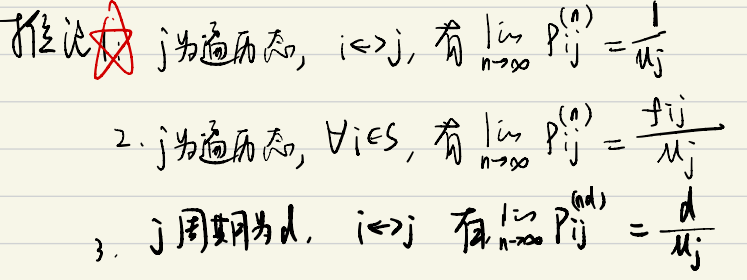 推论1. j为遍历态, i↔j, 有 lim_{n→∞} P_{ij}^{(n)} = 1/μ_j
2. j为遍历态, ∀i∈S, 有 lim_{n→∞} P_{ij}^{(n)} = f_{ij}/μ_j
3. j周期为d, i↔j 有 lim_{n→∞} P_{ij}^{(nd)} = d/μ_j